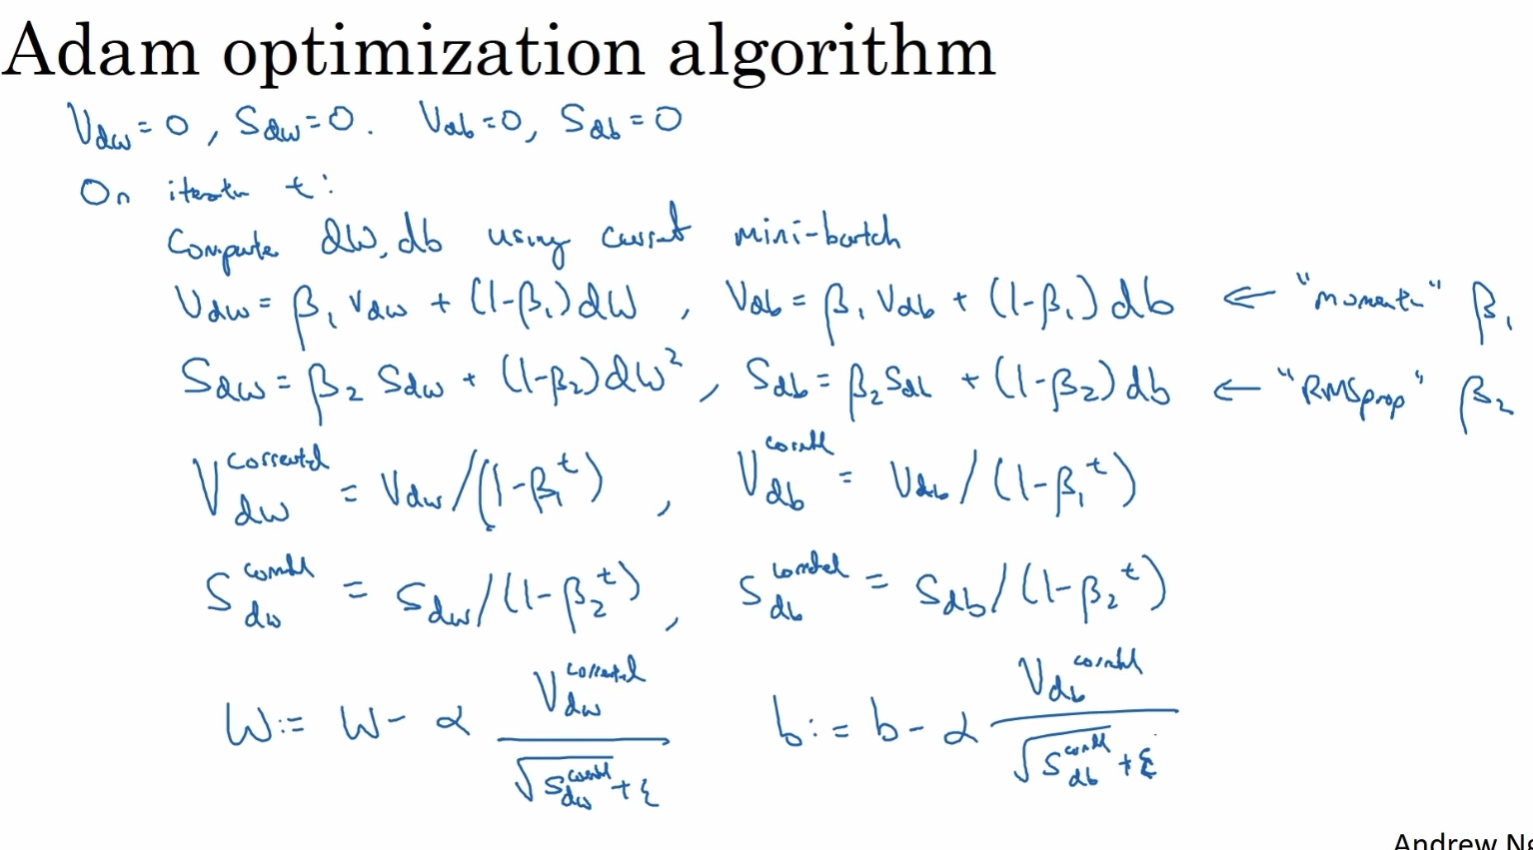 Adam optimization algorithm
V_dw = 0, S_dw = 0. V_db = 0, S_db = 0
On iteratn t:
Compute dW, db using current mini-batch
V_dw = β₁ V_dw + (1-β₁) dW , V_db = β₁ V_db + (1-β₁) db ← "moment" β₁
S_dw = β₂ S_dw + (1-β₂) dW² , S_db = β₂ S_db + (1-β₂) db ← "RMSprop" β₂
V_dw^corrected = V_dw/(1-β₁^t) , V_db^corrected = V_db/(1-β₁^t)
S_dw^corrected = S_dw/(1-β₂^t) , S_db^corrected = S_db/(1-β₂^t)
W := W - α V_dw^corrected / √S_dw^corrected + ε b := b - α V_db^corrected / √S_db^corrected + ε
Andrew Ng